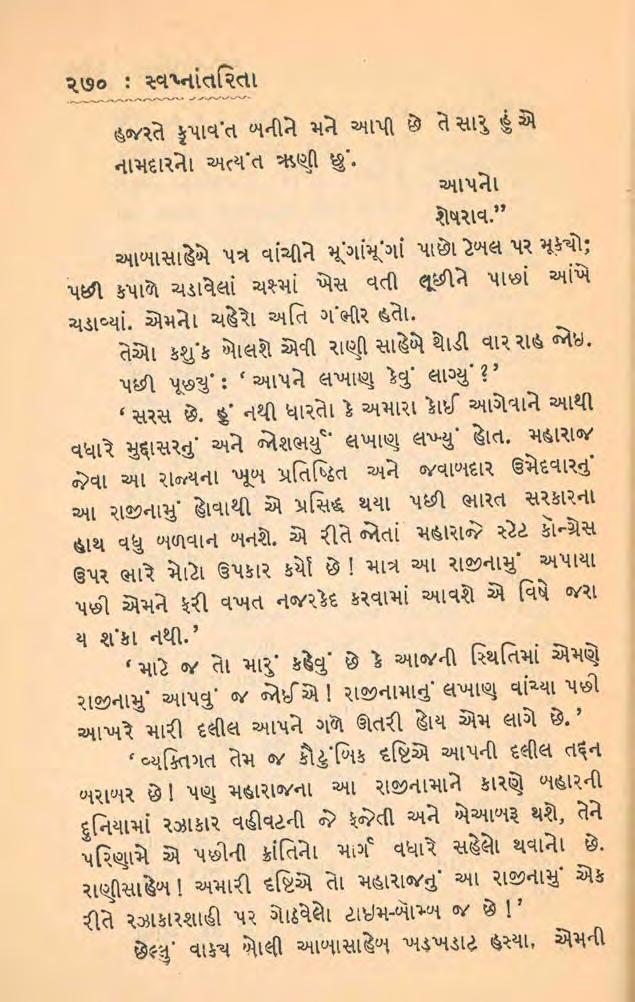 ૨૭૦ : સ્વપ્નાંતરિતા
હજરતે કૃપાવંત બનીને મને આપી છે તે સારુ હું એ
નામદારનો અત્યંત ઋણી છું.
આપનો
શેષરાવ.”
આબાસાહેબે પત્ર વાંચીને મૂંગાંમૂંગાં પાછો ટેબલ પર મૂક્યો;
પછી કપાળે ચડાવેલાં ચશ્માં ખેસ વતી લૂછીને પાછાં આંખે
ચડાવ્યાં. એમનો ચહેરો અતિ ગંભીર હતો.
તેઓ કશુંક બોલશે એવી રાણી સાહેબે થોડી વાર રાહ જોઇ.
પછી પૂછ્યું : ‘ આપને લખાણ કેવું લાગ્યું ?’
‘ સરસ છે. હું નથી ધારતો કે અમારા કોઈ આગેવાને આથી
વધારે મુદ્દાસરનું અને જોશભર્યું લખાણ લખ્યું હોત. મહારાજ
જેવા આ રાજ્યના ખૂબ પ્રતિષ્ઠિત અને જવાબદાર ઉમેદવારનું
આ રાજીનામું હોવાથી એ પ્રસિદ્ધ થયા પછી ભારત સરકારના
હાથ વધુ બળવાન બનશે. એ રીતે જોતાં મહારાજે સ્ટેટ કૉન્ગ્રેસ
ઉપર ભારે મોટો ઉપકાર કર્યો છે ! માત્ર આ રાજીનામું અપાયા
પછી એમને ફરી વખત નજરકેદ કરવામાં આવશે એ વિષે જરા
ય શંકા નથી.’
‘ માટે જ તો મારું કહેવું છે કે આજની સ્થિતિમાં એમણે
રાજીનામું આપવું જ જોઈએ ! રાજીનામાનું લખાણ વાંચ્યા પછી
આખરે મારી દલીલ આપને ગળે ઊતરી હોય એમ લાગે છે.’
‘ વ્યક્તિગત તેમ જ કૌટુંબિક દૃષ્ટિએ આપની દલીલ તદ્દન
બરાબર છે ! પણ મહારાજના આ રાજીનામાને કારણે બહારની
દુનિયામાં રઝાકાર વહીવટની જે ફજેતી અને બેઆબરૂ થશે, તેને
પરિણામે એ પછીની ક્રાંતિનો માર્ગ વધારે સહેલો થવાનો છે.
રાણીસાહેબ ! અમારી દૃષ્ટિએ તો મહારાજનું આ રાજીનામું એક
રીતે રઝાકારશાહી પર ગોઠવેલો ટાઇમ-બૉમ્બ જ છે !’
છેલ્લું વાક્ય બોલી આબાસાહેબ ખડખડાટ હસ્યા. એમની